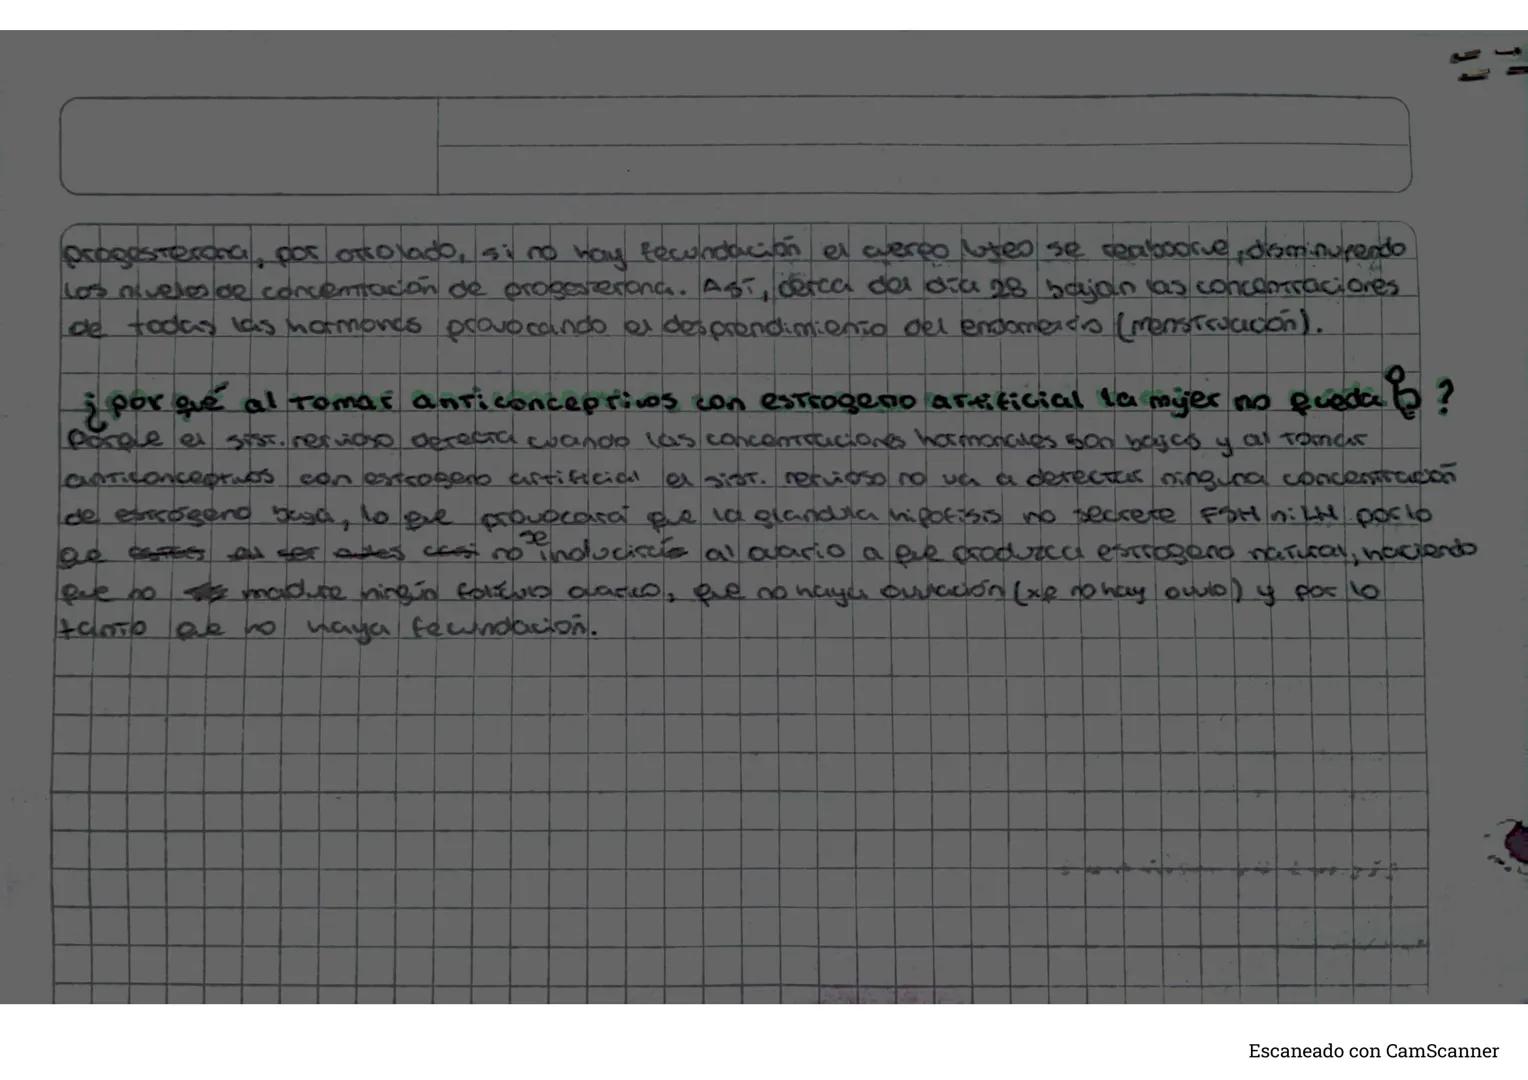 progesterona, por otrolado, si no hay fecundación el cuerpo luteo se reabsorve, disminuyendo
los niveles de concentración de progesterona. Así, cerca del día 28 bajan las concentraciones
de todas las hormonas provocando el desprendimiento del endometrio (menstruación).
¿por qué al tomar anticonceptivos con estrogeno artificial la mujer no queda ?
Porque el sist. nervioso detecta cuando las concentraciones hormonales son bajas y al tomar
anticonceptivos con estrogeno artificial el sist. nervioso no va a detectar ninguna concentración
de estrógeno baja, lo que provocará que la glandula hipofisis no secrete FSH ni LH por lo
que no se inducirá al ovario a que produzca estrogeno natural, haciendo
que no madure ningún folículo ovarico, que no haya ovulación (xq no hay ovulo) y por lo
tanto que no haya fecundación.
Escaneado con CamScanner